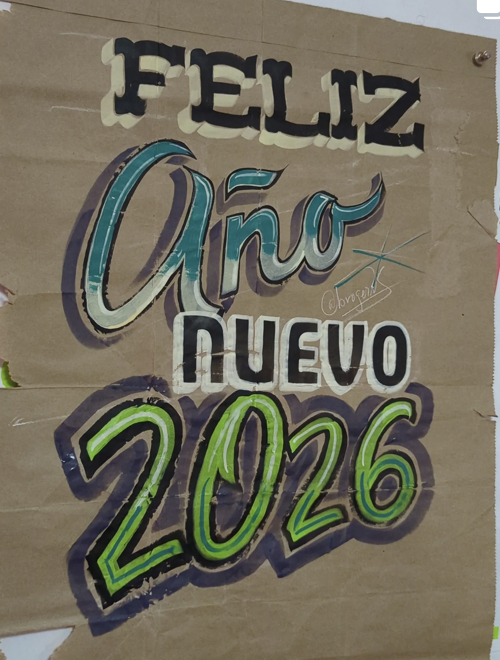 FELIZ
Año
NUEVO
2026